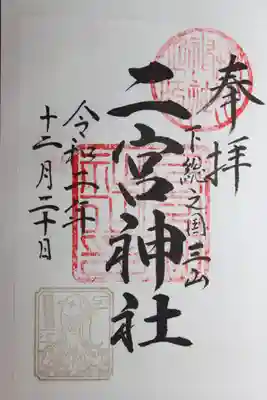 奉拝
下総之国三山
二宮神社
令和五年
十二月二十日